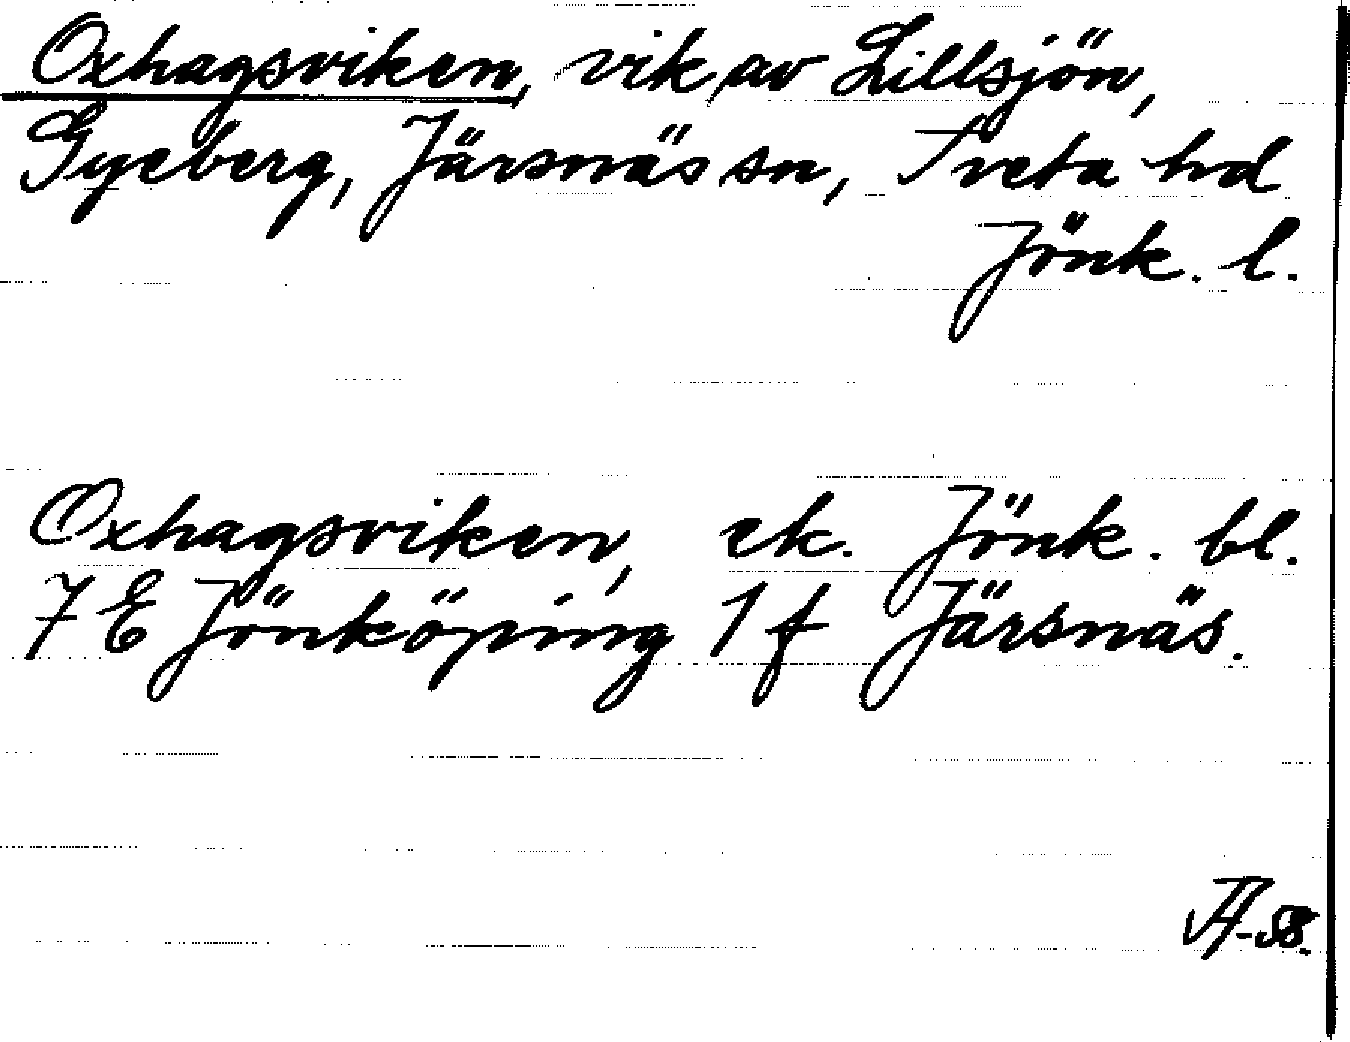 Oxhagsviken, vik av Lillsjön,
Gyeberg, Järsnäs sn, Tveta hd
Jönk. l.
Oxhagsviken, ek. Jönk. bl.
7 E Jönköping 1 f Järsnäs.